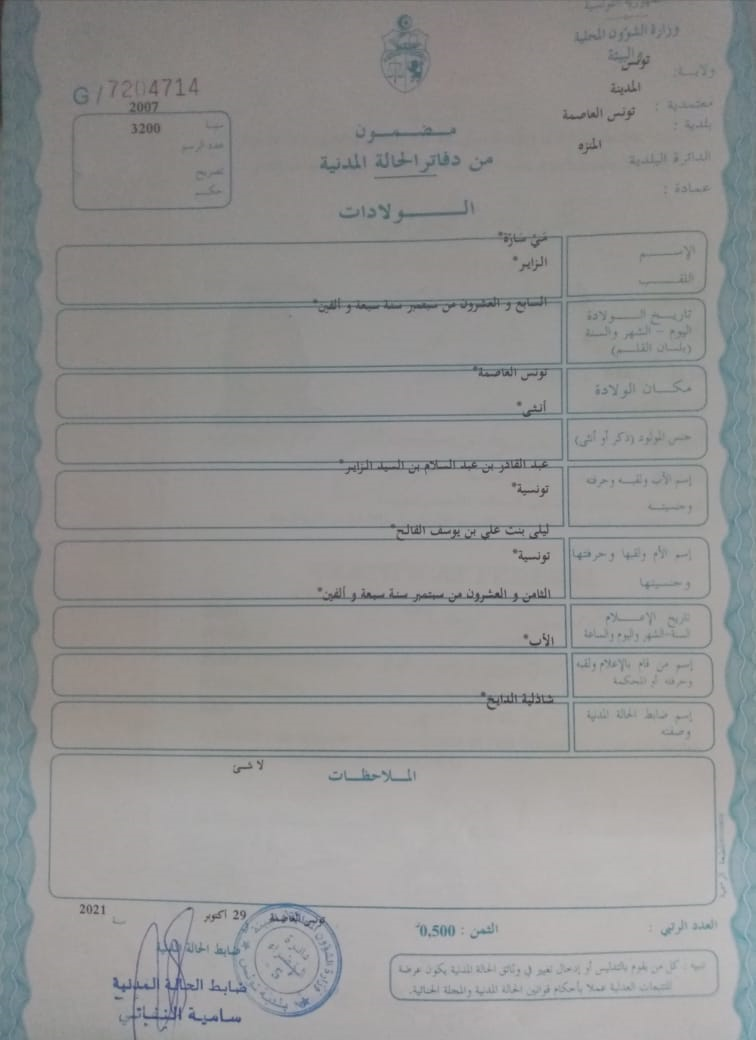 الجمهورية التونسية
وزارة الشؤون المحلية
والبيئة
ولاية : تونس
معتمدية : المدينة
بلدية : تونس العاصمة
الدائرة البلدية المنزه
عمادة :
G / 7204714
سنة 2007
عدد الرسم 3200
تصريح
حكم
مضمون
من دفاتر الحالة المدنية
الولادات
الإسم
مَيّ سَارّة*
اللقب
الزاير*
تاريخ الولادة
اليوم - الشهر والسنة
(بلسان القلم)
السابع و العشرون من سبتمبر سنة سبعة و ألفين*
مكان الولادة
تونس العاصمة*
جنس المولود (ذكر أو أنثى)
أنثى*
إسم الأب ولقبه وحرفته
وجنسيته
عبد القادر بن عبد السلام بن السيد الزاير*
تونسية*
إسم الأم ولقبها وحرفتها
وجنسيتها
ليلى بنت علي بن يوسف الفالح*
تونسية*
تاريخ الإعلام
السنة-الشهر واليوم والساعة
الثامن و العشرون من سبتمبر سنة سبعة و ألفين*
إسم من قام بالإعلام ولقبه
وحرفته أو المحكمة
الأب*
إسم ضابط الحالة المدنية
وصفته
شاذلية الدايخ*
الملاحظات
لا شئ
العدد الرتبي :
الثمن : 0,500د
تونس العاصمة 29 أكتوبر سنة 2021
ضابط الحالة المدنية
ضابط الحالة المدنية
تنبيه : كل من يقوم بالتدليس أو إدخال تغيير في وثائق الحالة المدنية يكون عرضة
للتتبعات العدلية عملا بأحكام قوانين الحالة المدنية والمجلة الجنائية.